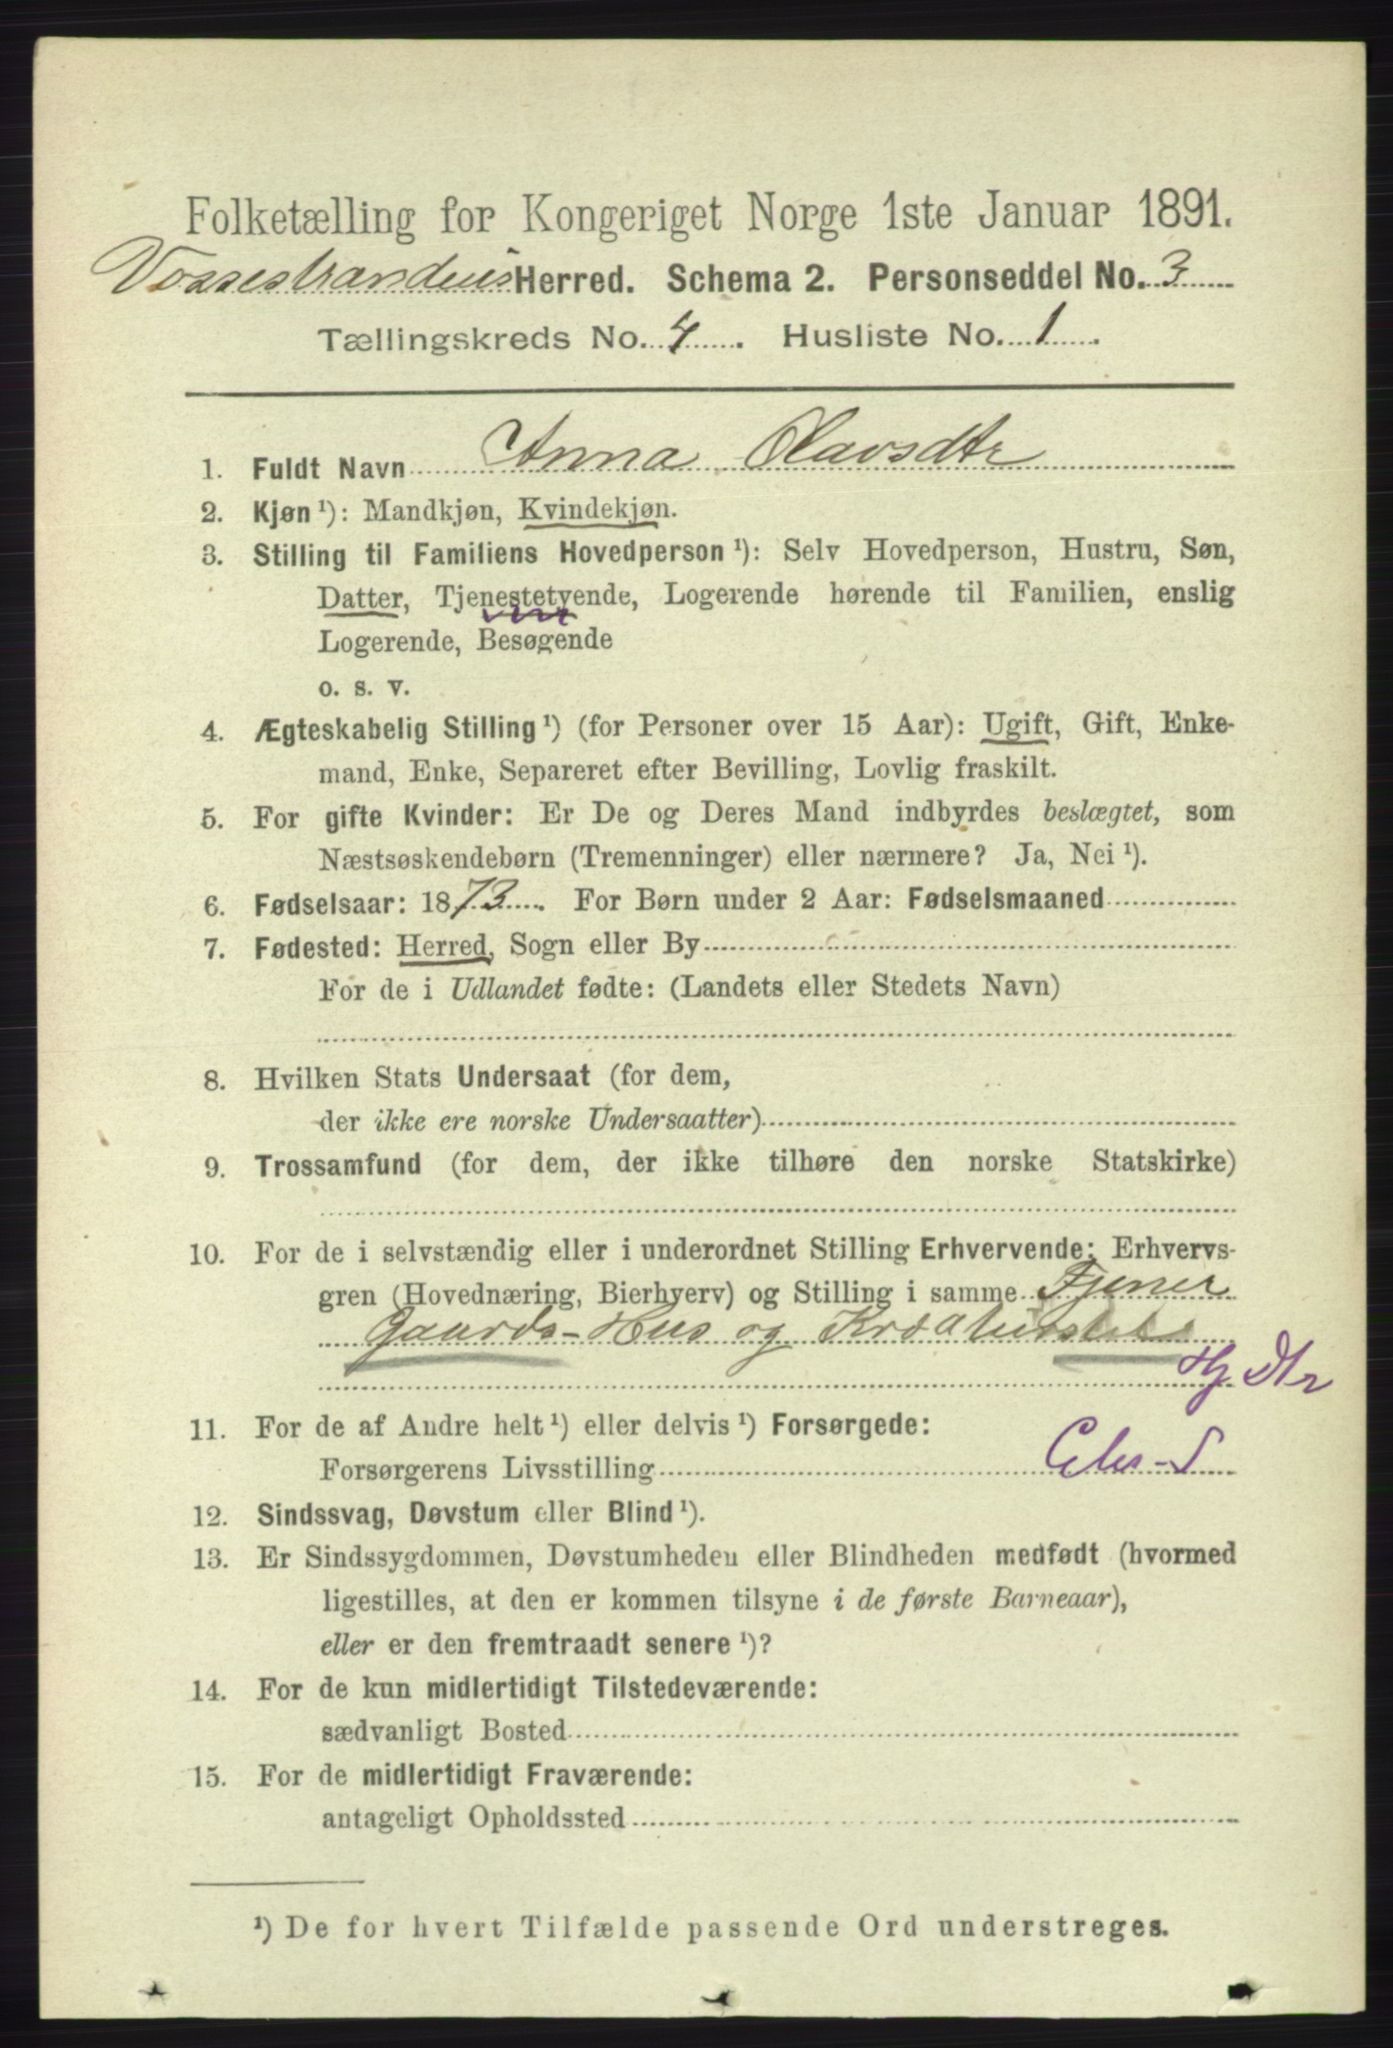 Folketælling for Kongeriget Norge 1ste Januar 1891.
Vossestrandens Herred. Schema 2. Personseddel No. 3
Tællingskreds No. 4. Husliste No. 1.
1. Fuldt Navn Anna Olavsdtr
2. Kjøn ¹): Mandkjøn, Kvindekjøn.
3. Stilling til Familiens Hovedperson ¹): Selv Hovedperson, Hustru, Søn,
Datter, Tjenestetyende, Logerende hørende til Familien, enslig
Logerende, Besøgende
o. s. v.
4. Ægteskabelig Stilling ¹) (for Personer over 15 Aar): Ugift, Gift, Enke-
mand, Enke, Separeret efter Bevilling, Lovlig fraskilt.
5. For gifte Kvinder: Er De og Deres Mand indbyrdes beslægtet, som
Næstsøskendebørn (Tremenninger) eller nærmere? Ja, Nei ¹).
6. Fødselsaar: 1873. For Børn under 2 Aar: Fødselsmaaned
7. Fødested: Herred, Sogn eller By
For de i Udlandet fødte: (Landets eller Stedets Navn)
8. Hvilken Stats Undersaat (for dem,
der ikke ere norske Undersaatter)
9. Trossamfund (for dem, der ikke tilhøre den norske Statskirke)
10. For de i selvstændig eller i underordnet Stilling Erhvervende: Erhvervs-
gren (Hovednæring, Bierhverv) og Stilling i samme Tjener
Gaards-Hus og Kreaturstel
Hj Dtr
11. For de af Andre helt ¹) eller delvis ¹) Forsørgede:
Forsørgerens Livsstilling
12. Sindssvag, Døvstum eller Blind ¹).
13. Er Sindssygdommen, Døvstumheden eller Blindheden medfødt (hvormed
ligestilles, at den er kommen tilsyne i de første Barneaar),
eller er den fremtraadt senere ¹)?
14. For de kun midlertidigt Tilstedeværende:
sædvanligt Bosted
15. For de midlertidigt Fraværende:
antageligt Opholdssted
¹) De for hvert Tilfælde passende Ord understreges.